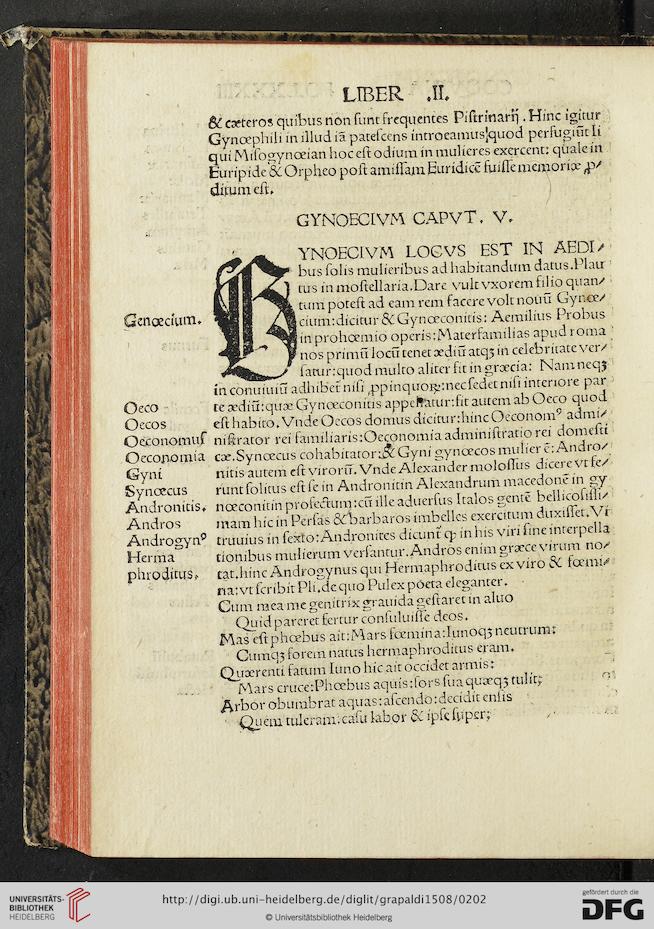 LIBER .II.
& cæteros quibus non sunt frequentes Pistrinarij. Hinc igitur
Gynœphili in illud iã patescens introeamus: quod perfugiũt Ii
qui Misogynœian hoc est odium in mulieres exercent: quale in
Euripide & Orpheo post amissam Euridicẽ fuisse memoriæ ꝓ/
ditum est.
GYNOECIVM CAPVT. V.
GYNOECIVM LOCVS EST IN AEDI/
bus solis mulieribus ad habitandum datus. Plau
tus in mostellaria. Dare vult vxorem filio quan/
tum potest ad eam rem facere volt nouũ Gynœ/
Genœcium.
cium: dicitur & Gynœconitis: Aemilius Probus
in prohœmio operis: Materfamilias apud roma
nos primũ locũ tenet ædiũ atqꝫ in celebritate ver/
satur: quod multo aliter fit in græcia: Nam neqꝫ
in conuiuiũ adhibet̃ nisi ꝓpinquoꝝ: nec sedet nisi interiore par
Oeco
te ædiũ: quæ Gynœconitis appellatur: fit autem ab Oeco quod
Oecos
est habito. Vnde Oecos domus dicitur: hinc Oeconomꝰ admi/
Oeconomus
nistrator rei familiaris: Oeconomia administratio rei domesti
Oeconomia
cæ. Synœcus cohabitator: & Gyni gynœcos mulier ẽ: Andro/
Gyni
nitis autem est virorũ. Vnde Alexander molossus dicere vt fe/
Synœcus
runt solitus est se in Andronitin Alexandrum macedonẽ in gy
Andronitis.
nœconitin profectum: cũ ille aduersus Italos gentẽ bellicosissi/
Andros
mam hic in Persas & barbaros imbelles exercitum duxisset. Vi
Androgynꝰ
truuius in sexto: Andronites dicunt̃ ꝙ in his viri sine interpella
Herma
tionibus mulierum versantur. Andros enim græce virum no/
phroditus.
tat. hinc Androgynus qui Hermaphroditus ex viro & fœmi/
na: vt scribit Pli. de quo Pulex poeta eleganter.
Cum mea me genitrix grauida gestaret in aluo
Quid pareret fertur consuluisse deos.
Mas est phœbus ait: Mars fœmina: Iunoqꝫ neutrum:
Cumqꝫ forem natus hermaphroditus eram.
Quærenti fatum Iuno hic ait occidet armis:
Mars cruce: Phœbus aquis: sors sua quæqꝫ tulit:
Arbor obumbrat aquas: ascendo: decidit ensis
Quem tuleram: casu labor & ipse super:
UNIVERSITÄTS-
BIBLIOTHEK
HEIDELBERG
http://digi.ub.uni-heidelberg.de/diglit/grapaldi1508/0202
© Universitätsbibliothek Heidelberg
gefördert durch die
DFG